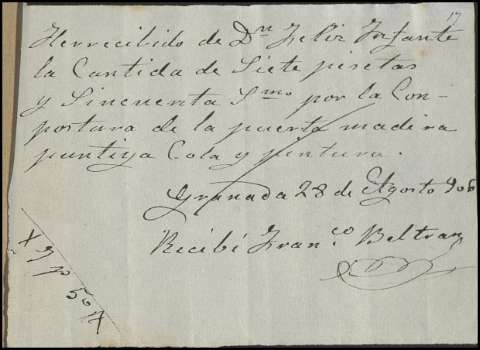 17
Herrecibido de Dn Feliz Infante
la Cantida de Siete pisetas
y Sincuenta Smo por la Con-
postura de la puerta madera
puntiya Cola y pintura.
Granada 28 de Agosto 906
Recibí Franco Beltran